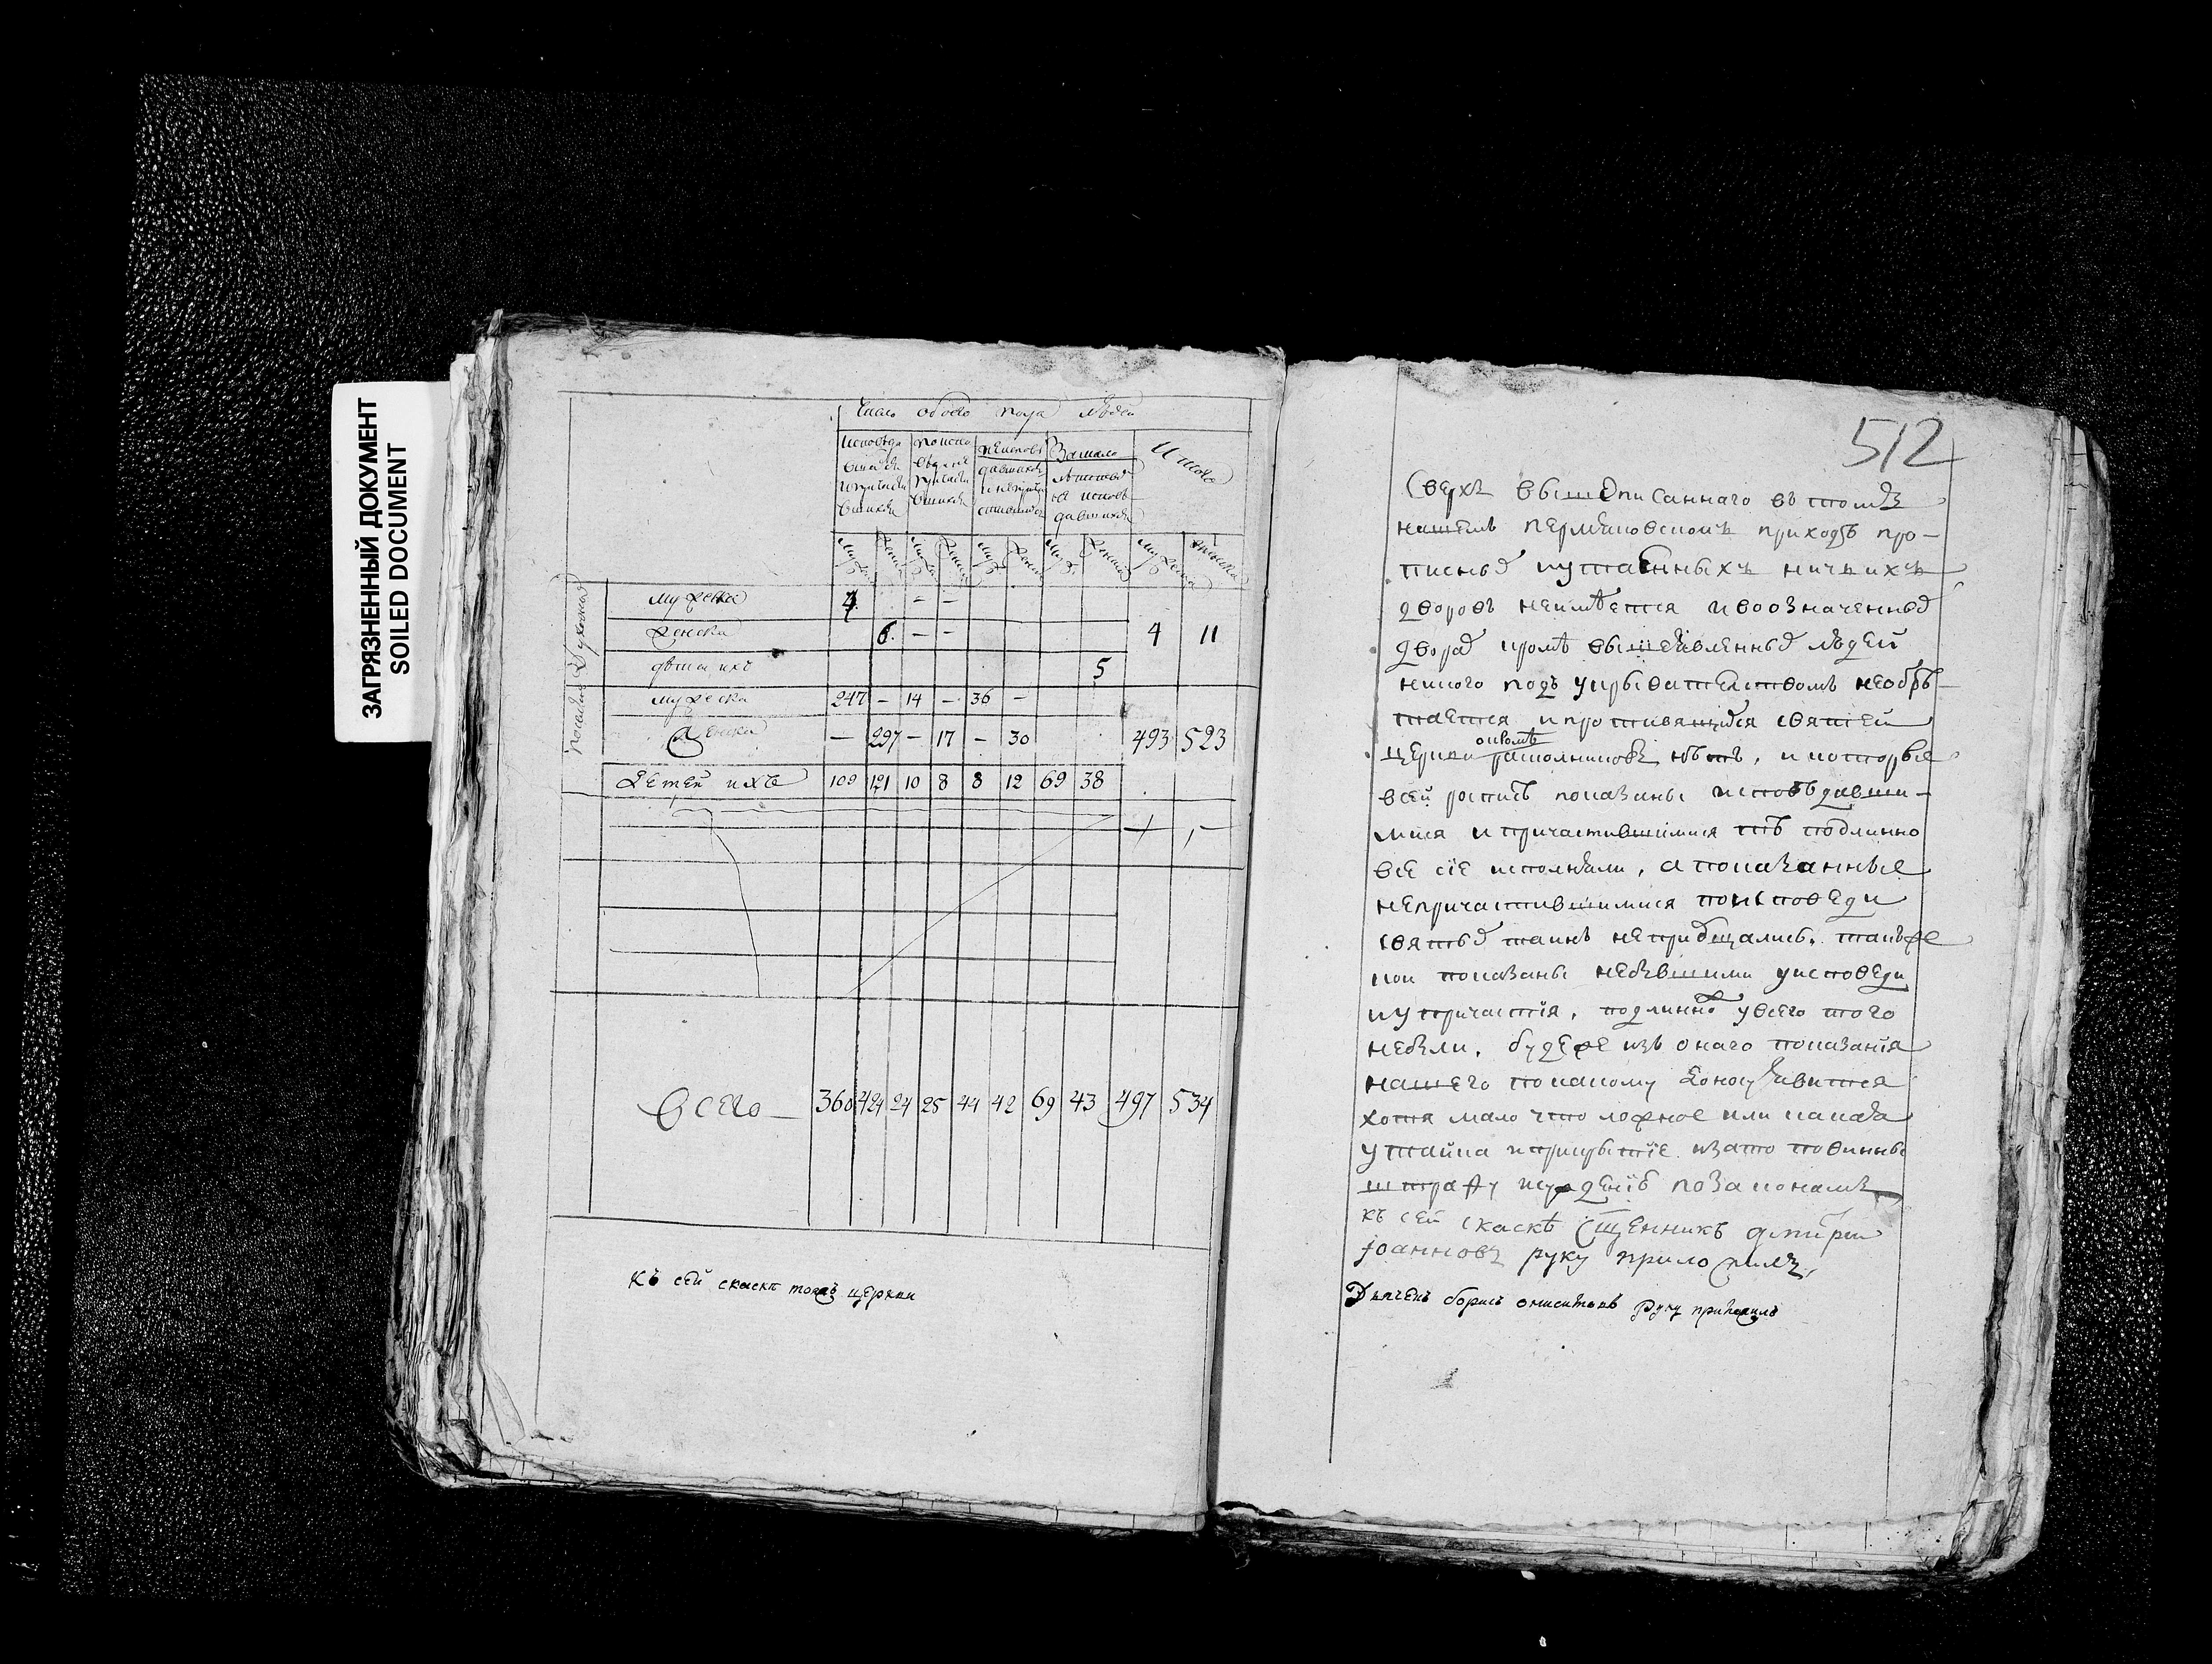 ЗАГРЯЗНЕННЫЙ ДОКУМЕНТ
SOILED DOCUMENT
Число обоего пола людей
Исповѣда
вшихся
ипричасти
вшихся
Замало
лѣтством
не исповѣ
давшихся
Итого
мужеска 4 — —
женска 6. — — 4 11
дѣти ихъ 5
мужеска 247 — 14 — 36 —
женска — 297 — 17 — 30 493 523
Детей ихъ 109 121 10 8 8 12 69 38
Всего 360 424 24 25 44 42 69 43 497 534
Къ сей скаскѣ тояжъ церкви
512
Сверхъ вышеписаннаго въ томъ
нашемъ приходѣ про-
писныхъ иутаенныхъ ничьихъ
дворовъ неимѣется ивоозначенныхъ
дворахъ кромѣ вышеявленныхъ людей
никого подъ укрывателствомъ необрѣ-
тается ипротивящихся святѣй
церкви окромѣ расколниковъ нѣтъ, икоторые
всей росписѣ показаны исповѣдавши-
мися ипричастившимися тѣ подлинно
все сїе исполнили, апоказанные
непричастившимися поисповеди
святыхъ таинъ неприобщались, такъже
кои показаны небывшими уисповеди
иупричастїя, подлинно увсего того
небыли. будеже изъ онаго показанїя
нашего покакому доносу явится
хотя мало что ложное или какая
утайка иприкрытїе изато повинны
штрафу исужденїю позаконамъ
къ сей скаскѣ Сщенникъ дмитреи
Іоанновъ руку приложилъ,
Дьячекъ борисъ руку приложилъ